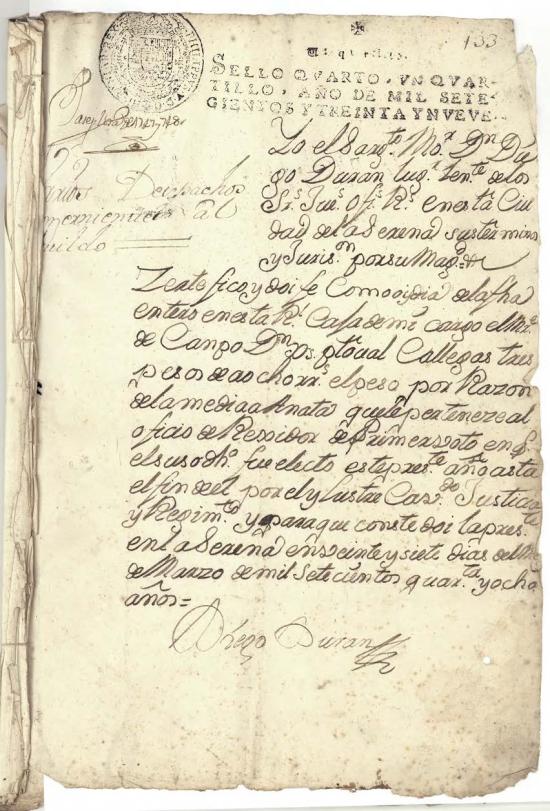 133
SELLO QVARTO, VN QVAR-
TILLO, AÑO DE MIL SETE-
CIENTOS Y TREINTA Y NVEVE
Despachos
al
Yo el Sargto Mor Dn Die
go Durán lugr Tente de los
Srs Jues ofs Rs en esta Ciu
dad de la Serena sus terminos
y Jurisn por su Magd
Zertefico y doi fe Como oi dia de la fha
entero en esta Rl Casa de mi cargo el Me
de Canpo Dn Callegas tres
pesos de a ocho rrs el peso por Razon
de la media Anata que le perteneze al
oficio de Rexidor de Primer voto en q
el susodho fue electo este preste año asta
el fin del por el y lustre Cavdo Justicia
y Regimto y para que conste doi la preste
en la Serena en veinte y siete dias del Ms
de Marzo de mil Setecientos quarta y ocho
años=
Diego Duran